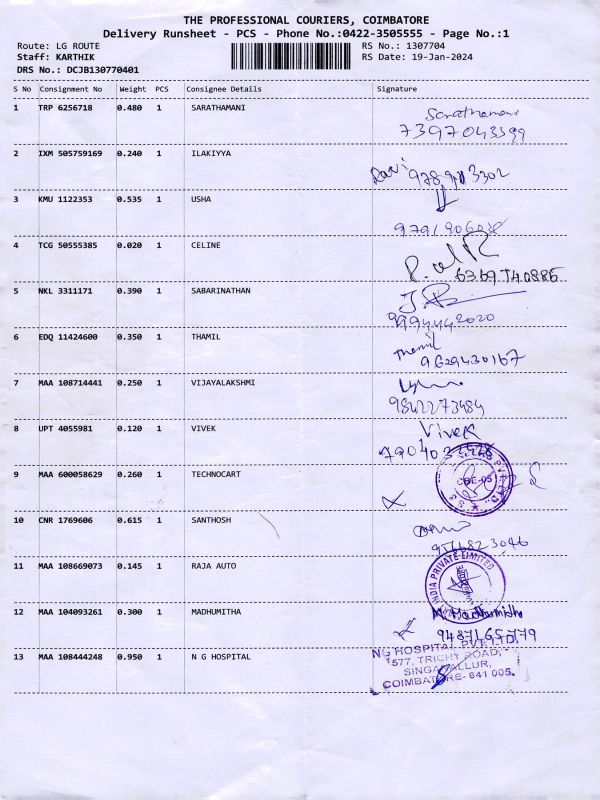 THE PROFESSIONAL COURIERS, COIMBATORE
Delivery Runsheet - PCS - Phone No.:0422-3505555 - Page No.:1
Route: LG ROUTE
RS No.: 1307704
Staff: KARTHIK
RS Date: 19-Jan-2024
DRS No.: DCJB130770401
S No Consignment No Weight PCS Consignee Details Signature
1 TRP 6256718 0.480 1 SARATHAMANI
Sarathamani
7397043399
2 IXM 505759169 0.240 1 ILAKIYYA
3 KMU 1122353 0.535 1 USHA
4 TCG 50555385 0.020 1 CELINE
5 NKL 3311171 0.390 1 SABARINATHAN
9994442020
6 EDQ 11424600 0.350 1 THAMIL
Thamil
9629430167
7 MAA 108714441 0.250 1 VIJAYALAKSHMI
9842273484
8 UPT 4055981 0.120 1 VIVEK
Vivek
9 MAA 600058629 0.260 1 TECHNOCART
10 CNR 1769606 0.615 1 SANTHOSH
11 MAA 108669073 0.145 1 RAJA AUTO
INDIA PRIVATE LIMITED
12 MAA 104093261 0.300 1 MADHUMITHA
M. Madhumitha
13 MAA 108444248 0.950 1 N G HOSPITAL
NG HOSPITAL PVT. LTD,
577, TRICHY ROAD,
SINGANALLUR,
COIMBATORE- 641 005.